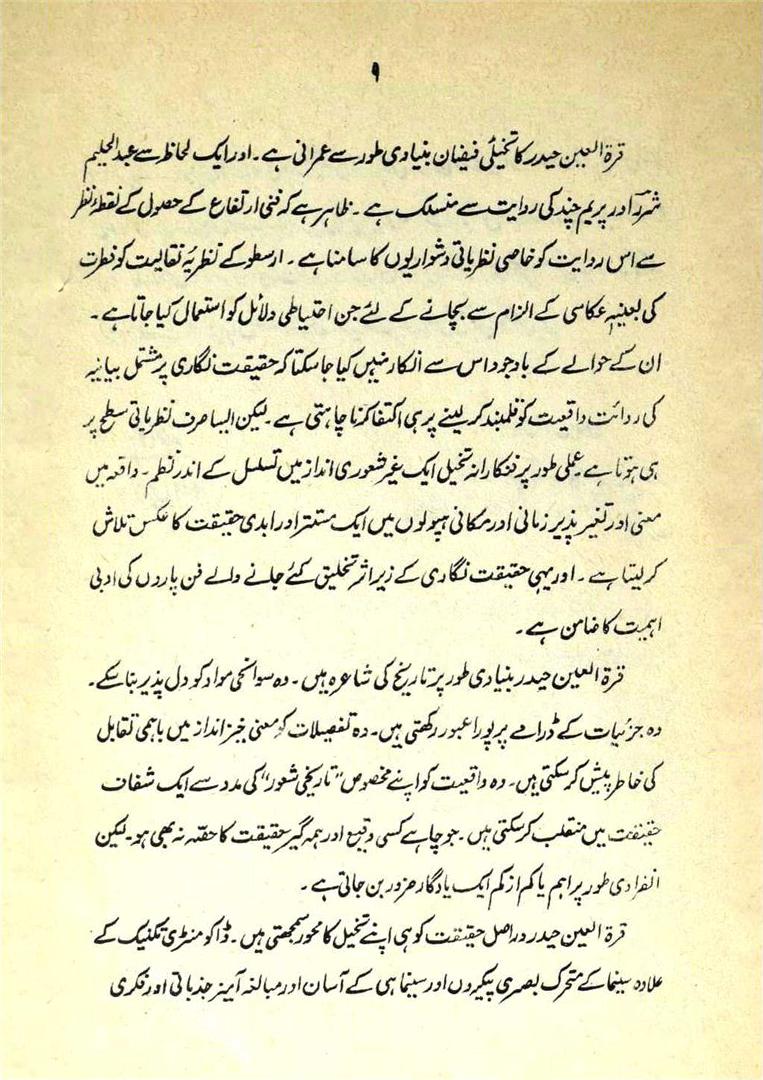 ۹
قرۃ العین حیدر کا تخیلی فیضان بنیادی طور سے عمرانی ہے۔ اور ایک لحاظ سے عبدالحلیم
شررؔ اور پریم چند کی روایت سے منسلک ہے۔ ظاہر ہے کہ فنی ارتفاع کے حصول کے نقطۂ نظر
سے اس روایت کو خاصی نظریاتی دشواریوں کا سامنا ہے۔ ارسطو کے نظریۂ نقالیت کو فطرت
کی بعینہٖ عکاسی کے الزام سے بچانے کے لئے جن احتیاطی دلائل کو استعمال کیا جاتا ہے۔
ان کے حوالے کے باوجود اس سے انکار نہیں کیا جا سکتا کہ حقیقت نگاری پر مشتمل بیانیہ
کی روائت واقعیت کو قلمبند کر لینے پر ہی اکتفا کرنا چاہتی ہے۔ لیکن ایسا صرف نظریاتی سطح پر
ہی ہوتا ہے۔ عملی طور پر فنکارانہ تخیلی ایک غیر شعوری انداز میں تسلسل کے اندر نظم۔ واقعہ میں
معنی اور تغیر پذیر زمانی اور مکانی ہیولوں میں ایک مستتر اور ابدی حقیقت کا عکس تلاش
کر لیتا ہے۔ اور یہی حقیقت نگاری کے زیر اثر تخلیق کئے جانے والے فن پاروں کی ادبی
اہمیت کا ضامن ہے۔
قرۃ العین حیدر بنیادی طور پر تاریخ کی شاعرہ ہیں۔ وہ سوانحی مواد کو دل پذیر بنا سکے۔
وہ جزئیات کے ڈرامے پر پورا عبور رکھتی ہیں۔ وہ تفصیلات کو معنی خیز انداز میں باہمی تقابل
کی خاطر پیش کر سکتی ہیں۔ وہ واقعیت کو اپنے مخصوص "تاریخی شعور" کی مدد سے ایک شفاف
حقیقت میں منقلب کر سکتی ہیں۔ جو چاہے کسی وقیع اور ہمہ گیر حقیقت کا حصّہ نہ بھی ہو۔ لیکن
انفرادی طور پر اہم یا کم از کم ایک یادگار ضرور بن جاتی ہے۔
قرۃ العین حیدر دراصل حقیقت کو ہی اپنے تخیل کا محور سمجھتی ہیں۔ ڈاکو منٹری تکنیک کے
علاوہ سینما کے متحرک بصری پیکروں اور سینما ہی کے آسان اور مبالغہ آمیز جذباتی اور فکری